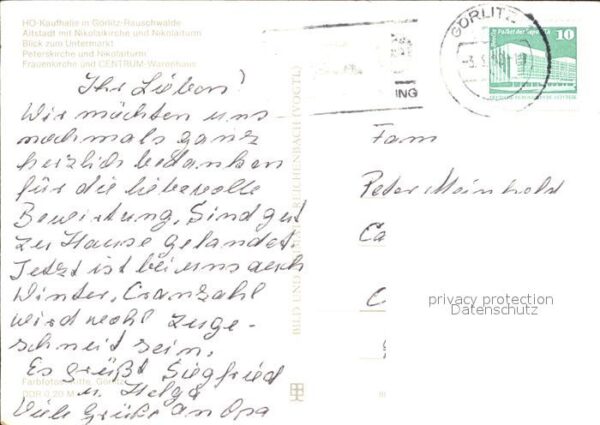 HO-Kaufhalle in Görlitz-Rauschwalde
Altstadt mit Nikolaikirche und Nikolaiturm
Blick zum Untermarkt
Peterskirche und Nikolaiturm
Frauenkirche und CENTRUM-Warenhaus
Ihr Lieben!
Wir möchten uns
nochmals ganz
herzlich bedanken
für die liebevolle
Bewirtung, Sind gut
zu Hause gelandet.
Jetzt ist bei uns auch
Winter, Cranzahl
wird wohl zuge-
schneit sein.
Es grüßt Siegfried
u. Helga
Viele Grüße an Opa
Farbfotos: Görlitz
DDR 0,20 M
BILD UND REICHENBACH (VOGTL)
GÖRLITZ
NG
Palast der Republik
10
Fam
Peter Meinhold
Ca
C
privacy protection
Datenschutz